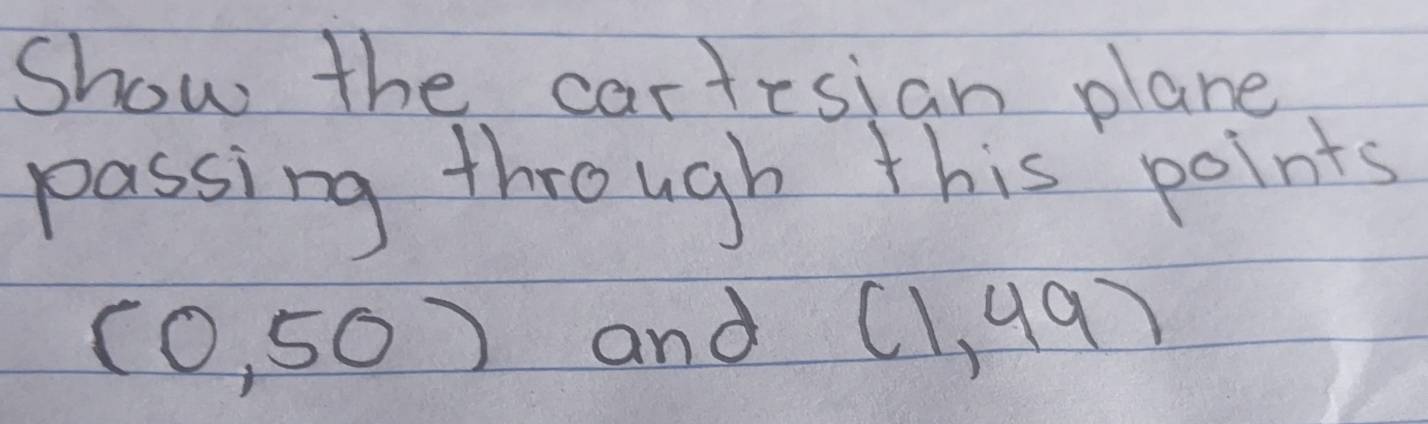 Show the cartesian plane
passing through this points
(0,50) and (1,49)